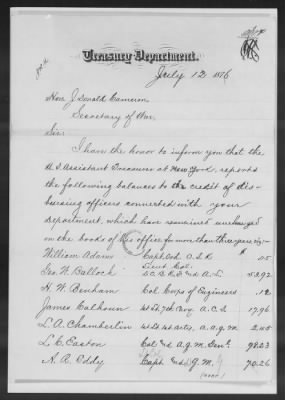 Treasury Department.
July 12 1876
Hon. J. Donald Cameron
Secretary of War.
Sir:
I have the honor to inform you that the
U.S. Assistant Treasurer at New York reports
the following balances to the credit of dis-
bursing officers connected with your
department, which have remained unchanged
on the books of his office for more than three years, viz:-
William Adams Capt. Ord. $ .05
Lieut. Col.
Geo. W. Ballock 52.92
H. W. Benham Col. Corps of Engineers .12
James Calhoun 1st Lt. 7th Cavy. A.C.S. 17.96
L. A. Chamberlin 1st Lt. 1st Arty. A.A.Q.M. 2.05
L. C. Easton Col. and A.Q.M. Genl. 98.23
A. R. Eddy Capt. Q.M. 70.26
(over)